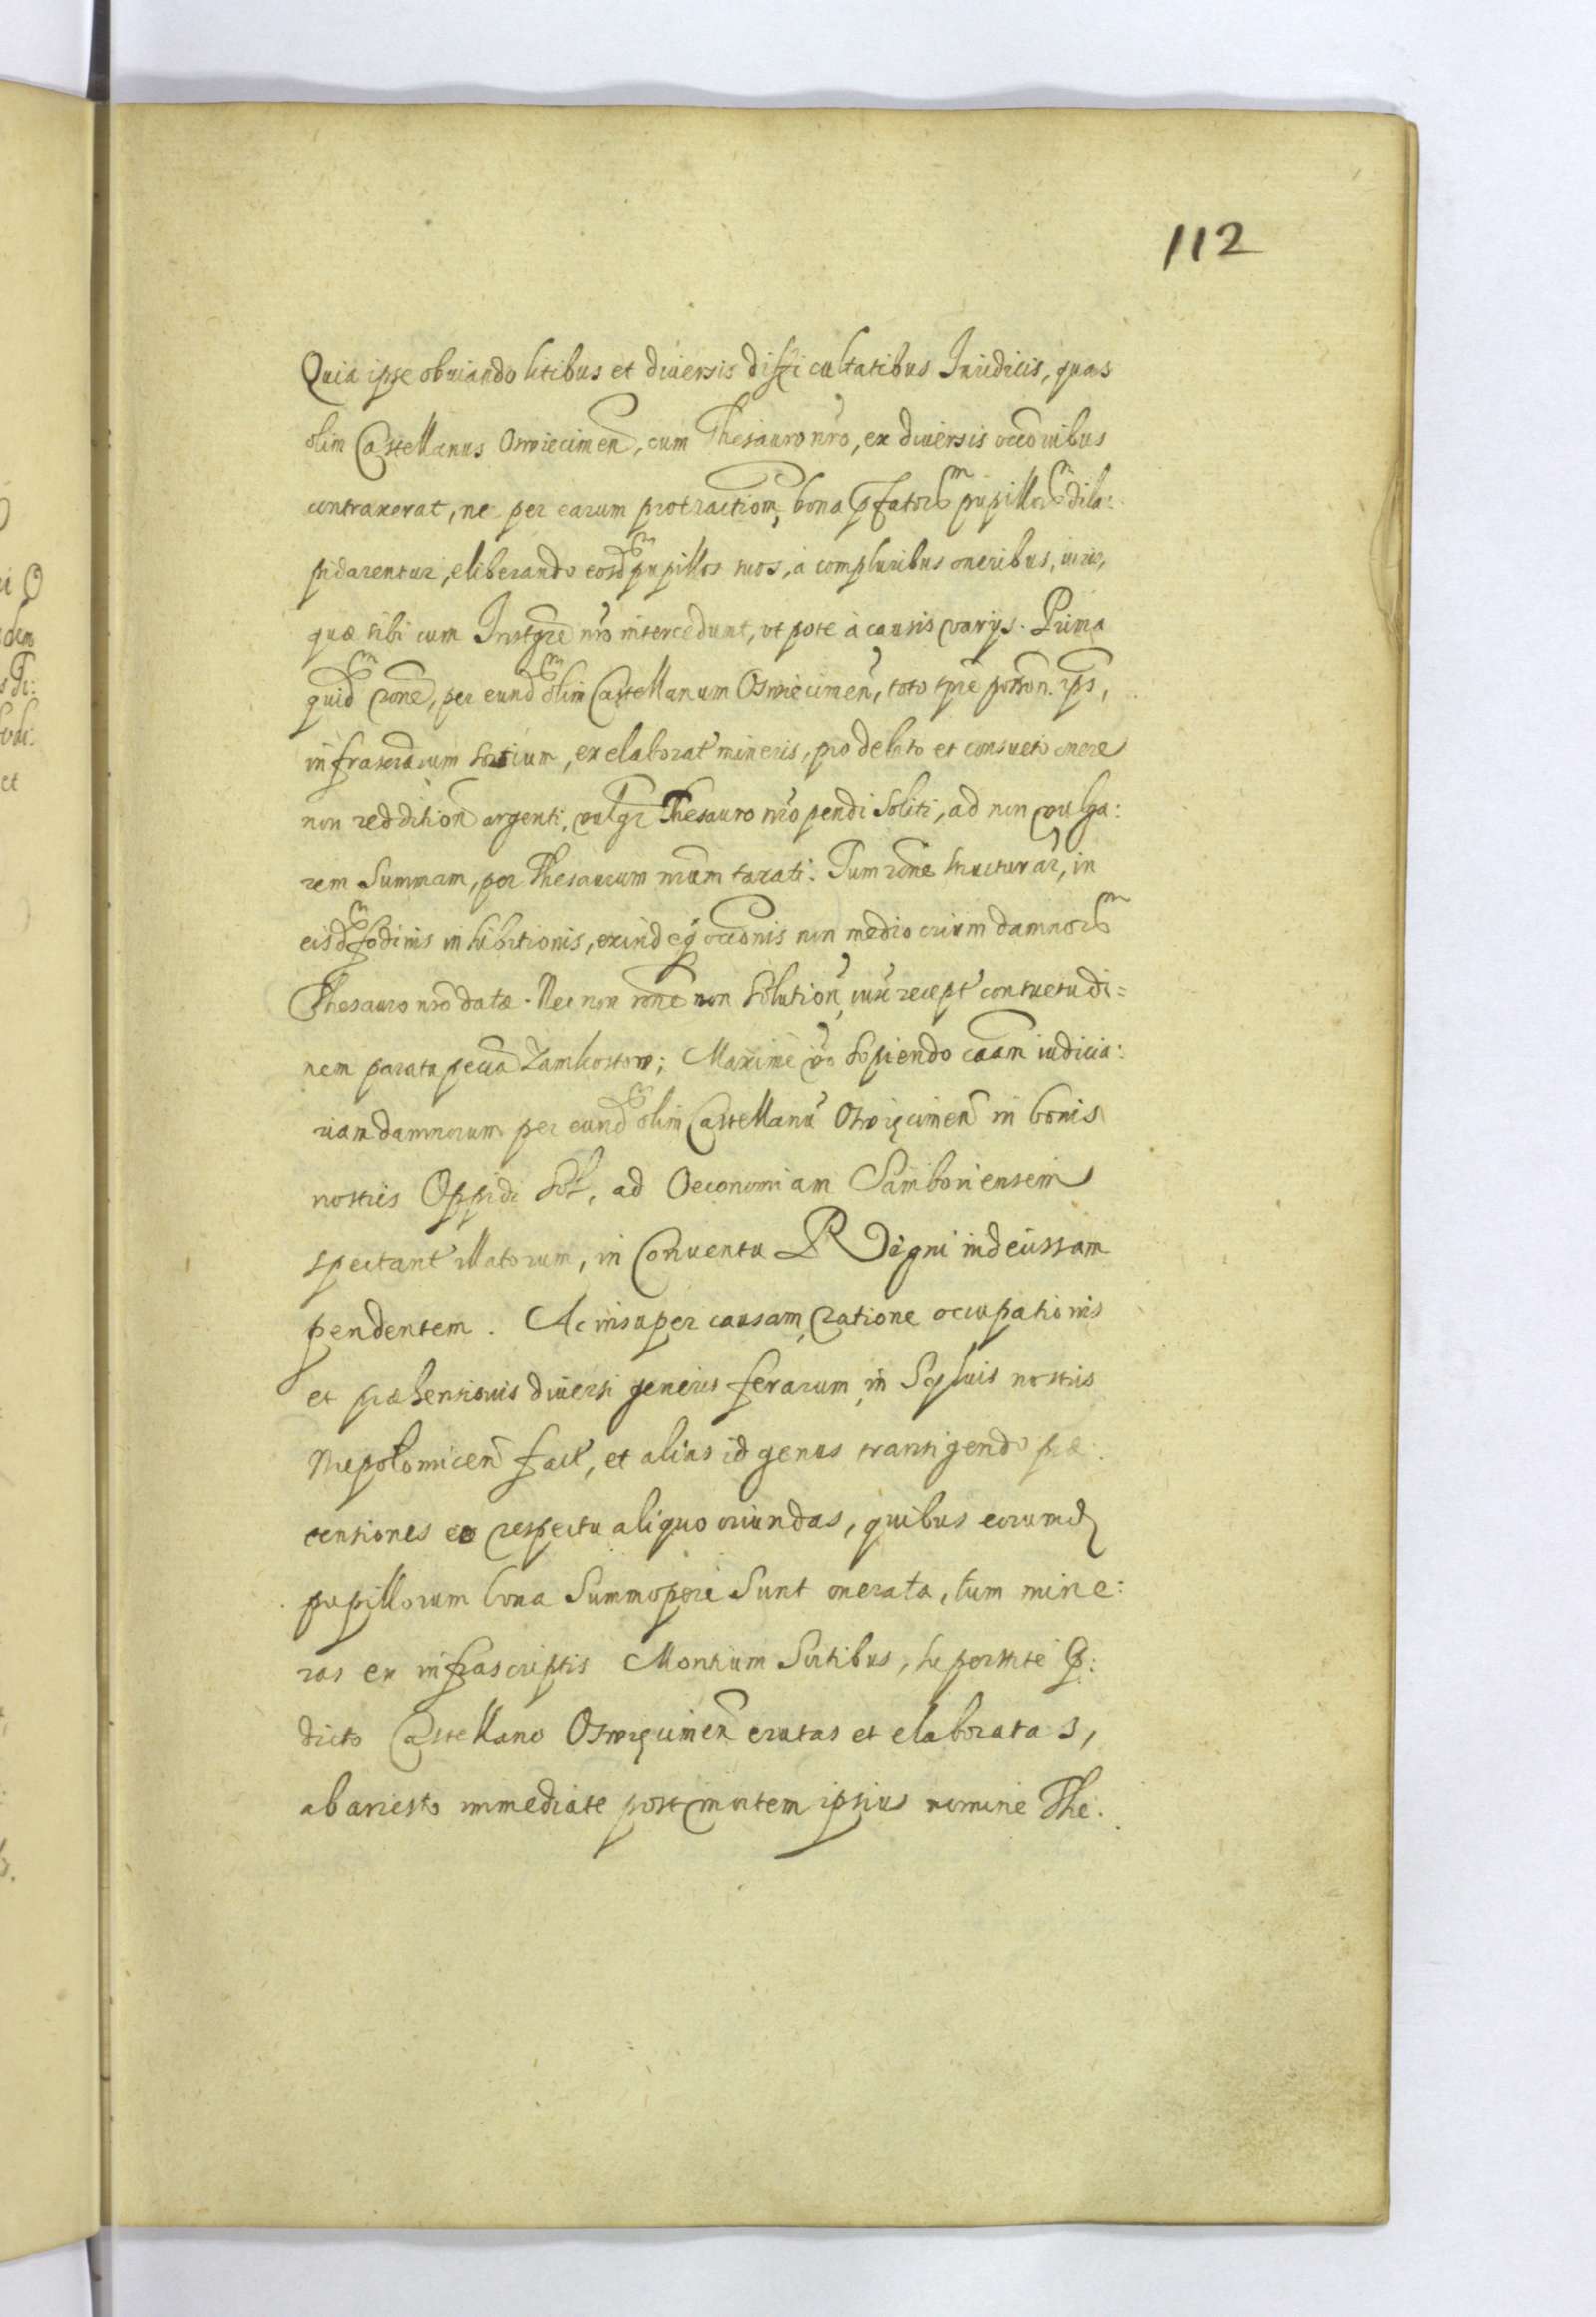 112
Quia ipse obuiando litibus et diuersis difficultatibus Iuridicis, quas
olim Castellanus Oswiecimen, cum Thesauro nro, ex diuersis occonibus
contraxerat, ne per earum protractiom, bona pfatorum pupillorum dila:
pidarentur, eliberando eosdem pupillos suos, à compluribus oneribus,
quæ sibi cum nro intercedunt, ut pote à causis varys. Prima
quidem rone, per eundem olim Castellanum Oswiecimen, toto tpre
infrascrarum sortium, ex elaborat mineris, pro debito et consueto onere
non reddition argenti, vulgr Thesauro nro pendi soliti, ad non vulga:
rem Summam, per Thesaurum nrum taxati. Tum rone structurar, in
eisdem fodinis inhibitionis, exindeq occonis non mediocrium damnorum
Thesauro nro datæ. Nec non rone non solution, iuxt recept consuetudi=
nem parata pecia Zamkostow; Maxime vo sopiendo caam iudicia:
riam damnorum per eundem olim Castellanu Oswięcimen in bonis
nostris Oppidi Sol, ad Oeconomiam Samboriensem
spectant illatorum, in Conuentu Regni indecissam
pendentem. Ac insuper causam, ratione occupationis
et præhensionis diuersi generis ferarum, in Syluis nostris
Niepołomicen fact, et alias id genus transigendo præ:
tensiones eo respectu aliquo oriundas, quibus eorumd
pupillorum bona Summopere Sunt onerata, tum mine:
ras ex infrascriptis Montium Sortibus, superstite p:
dicto Castellano Oswięcimen erutas et elaboratas,
ab arresto immediate post mortem ipsius nomine The: